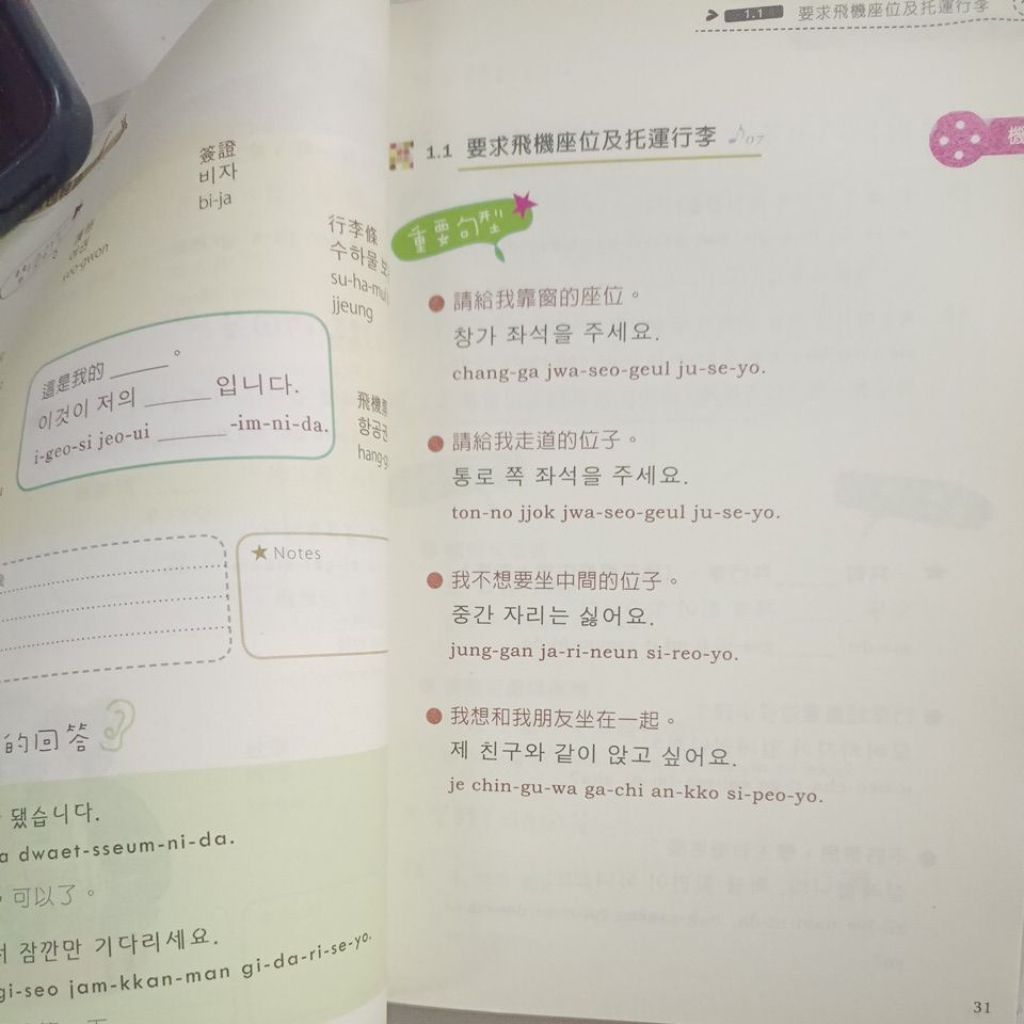 簽證
비자
bi-ja
行李條
수하물
su-ha-mul
jjeung
這是我的 ______ 。
이것이 저의 ______ 입니다.
i-geo-si jeo-ui ______ -im-ni-da.
항공권
Notes
的回答
됐습니다.
dwaet-sseum-ni-da.
可以了。
잠깐만 기다리세요.
gi-seo jam-kkan-man gi-da-ri-se-yo.
1.1 要求飛機座位及托運行李
1.1 要求飛機座位及托運行李 07
機
重要句型
請給我靠窗的座位。
창가 좌석을 주세요.
chang-ga jwa-seo-geul ju-se-yo.
請給我走道的位子。
통로 쪽 좌석을 주세요.
ton-no jjok jwa-seo-geul ju-se-yo.
我不想要坐中間的位子。
중간 자리는 싫어요.
jung-gan ja-ri-neun si-reo-yo.
我想和我朋友坐在一起。
제 친구와 같이 앉고 싶어요.
je chin-gu-wa ga-chi an-kko si-peo-yo.
31